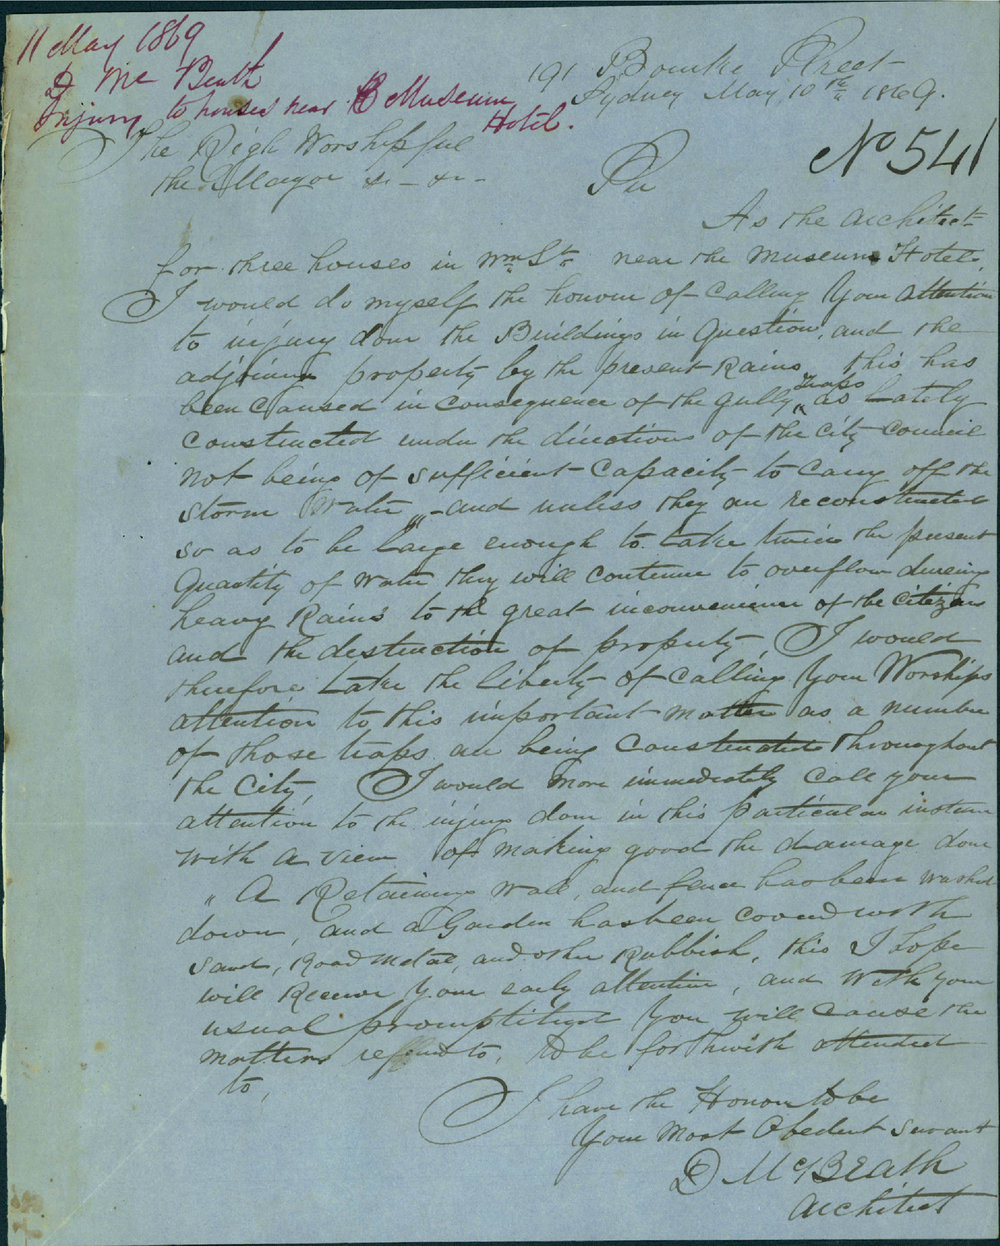 11 May 1869
D McBeath
Injury to houses near Museum
Hotel.
191 Bourke Street
Sydney May 10th 1869.
No 541
The Righ Worshipful
the Mayor &c - &c -
Sir
As the Architect
for three houses in Wm St near the Museum Hotel.
I would do myself the honour of Calling Your attention
to injury done the Buildings in Question, and the
adjoining property by the present Rains, this has
been Caused in Consequence of the gully traps as Lately
Constructed under the directions of the City Council
not being of sufficient Capacity to Carry off the
storm Water, - and unless they are reconstructed
so as to be Large enough to take twice the present
Quantity of Water they will continue to overflow dureing
heavy Rains to the great inconvenience of the Citizens
and the destruction of property, I would
therefore take the liberty of Calling Your Worships
attention to this important matter as a number
of those traps are being Constructed throughout
the City, I would more immediately Call your
attention to the injury done in this particular instance
with a view of making good the damage done
" A Retaining Wall, and fence has been washed
down, and a Garden has been coverd with
sand, Road Metal, and other Rubbish, this I hope
will Receive Your early attention, and With your
usual promptitud You will Cause the
matters referd to, to be forthwith attended
to,
I have the Honour to be
Your Most Obedient servant
D McBeath
Architect